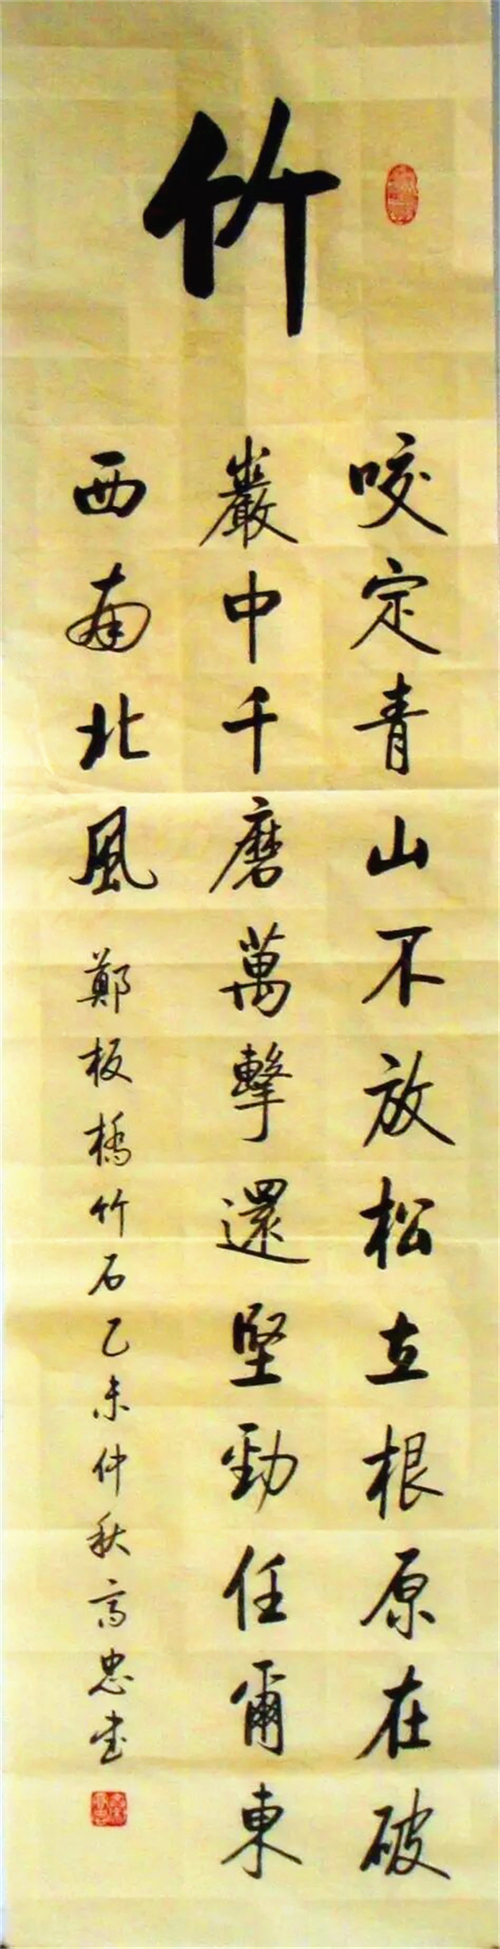 竹
咬定青山不放松立根原在破
巖中千磨萬擊還堅勁任爾東
西南北風
鄭板橋竹石乙未仲秋高忠書